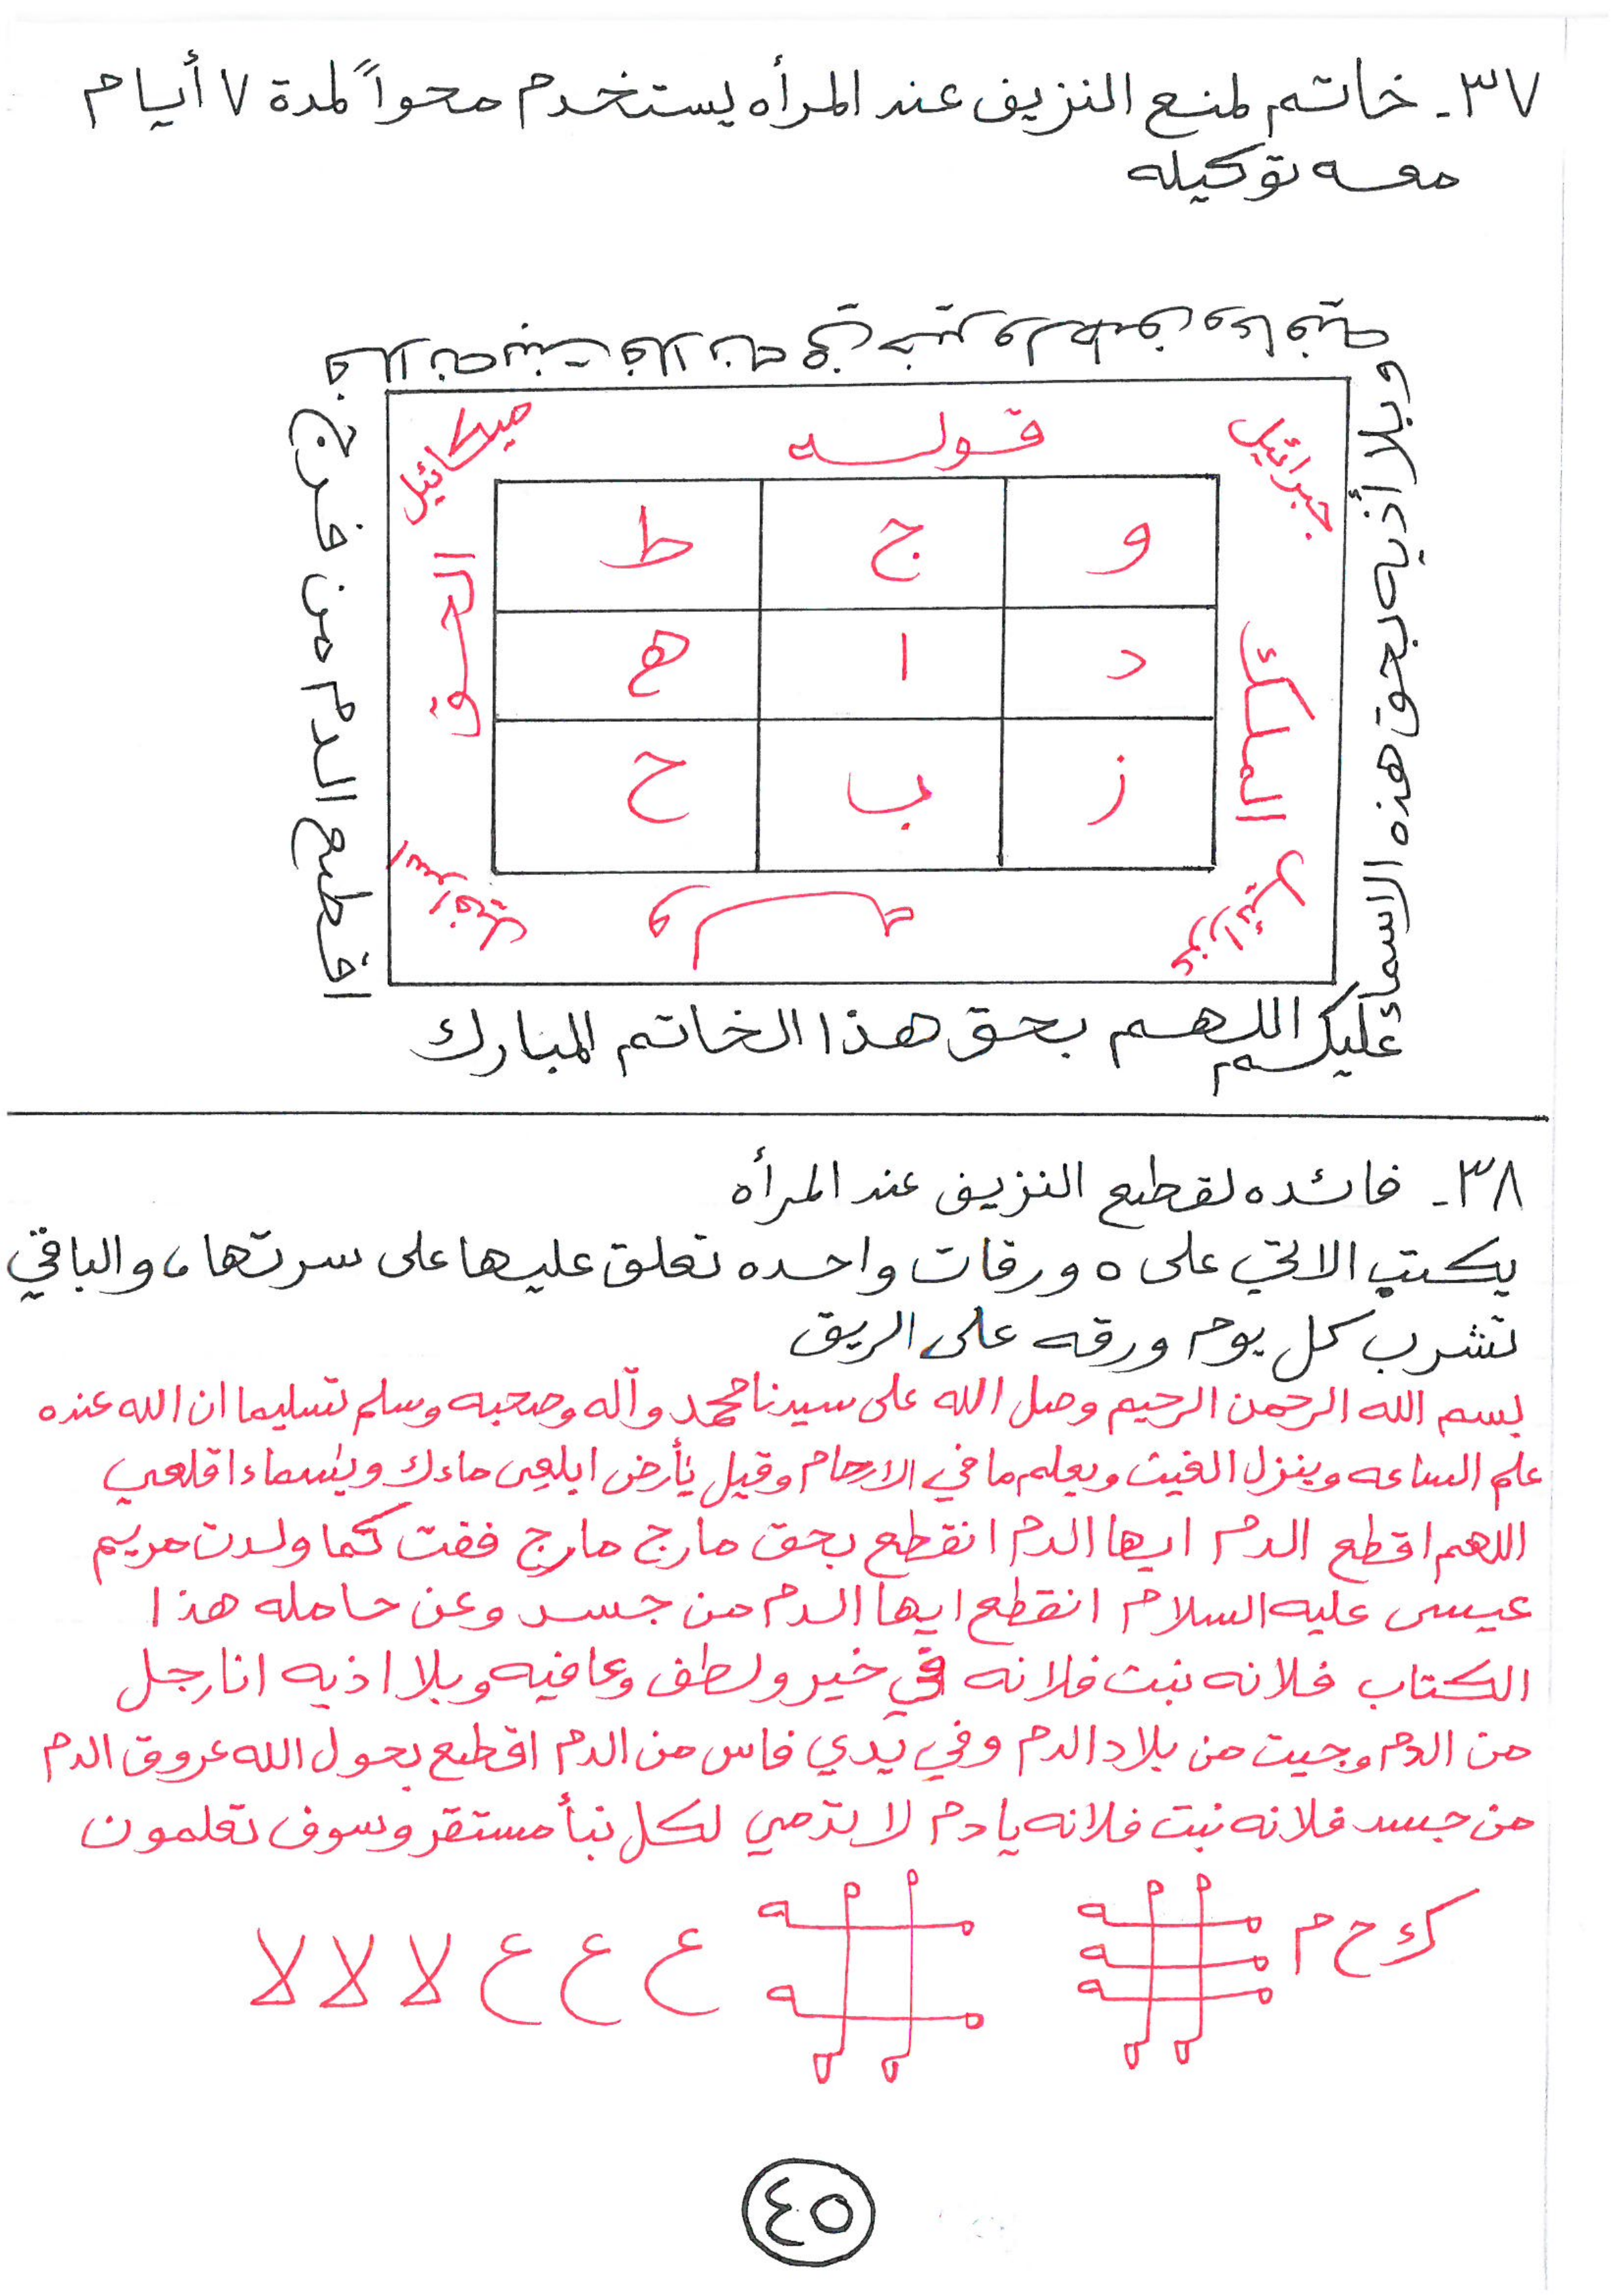 ٣٧- خاتم لمنع النزيف عند المرأه يستخدم محواً لمدة ٧ أيام
معه توكيله
اللهم بحق هذا الخاتم المبارك
اقطع الدم من فرج
فلانه بنت فلانه في خير ولطف وعافية
وبلا أذيه بحق هذه الاسماء
عليكم
جبرائيل
قوله
ميكائيل
الحق
الملك
عزرائيل
وله
اسرافيل
و ج ط
د ا ه
ز ب ح
٣٨- فائده لقطع النزيف عند المرأه
يكتب الاتي على ٥ ورقات واحده تعلق عليها على سرتها، والباقي
تشرب كل يوم ورقه على الريق
بسم الله الرحمن الرحيم وصل الله على سيدنا محمد وآله وصحبه وسلم تسليما ان الله عنده
علم الساعه وينزل الغيث ويعلم ما في الارحام وقيل يٰأرض ابلعي ماءك ويٰسماء اقلعي
اللهم اقطع الدم ايها الدم انقطع بحق مارج مارج ففت كما ولدت مريم
عيسى عليه السلام انقطع ايها الدم من جسد وعن حامله هذا
الكتاب فلانه بنت فلانه في خير ولطف وعافيه وبلا اذيه انا رجل
من الدم وجيت من بلاد الدم وفي يدي فاس من الدم اقطع بحول الله عروق الدم
من جسد فلانه بنت فلانه يا دم لا ترمي لكل نبأ مستقر وسوف تعلمون
ك ح م ع ع ع لا لا لا
٤٥